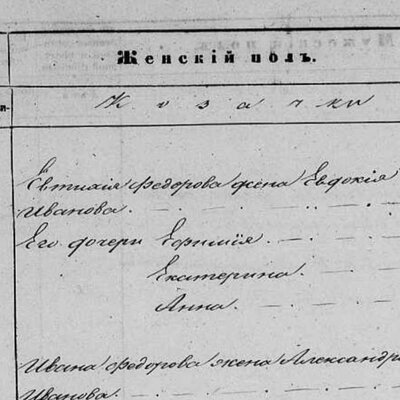 Женскій полъ.
Козачки
Евтихія Федорова жена Евдокія
Иванова.
Его дочери Ефимія.
Екатерина.
Анна.
Ивана Федорова жена Александра
Иванова.